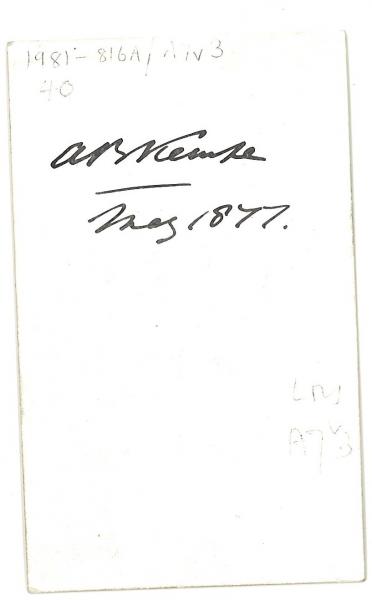 1981-816A/A7v3
40
A B Kempe
May 1877.
A7v3